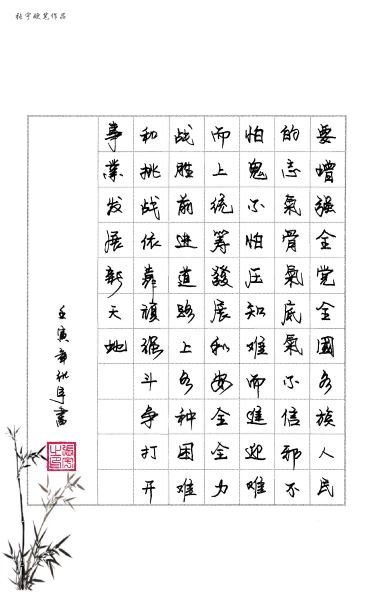 张宇硬笔作品
要增强全党全國各族人民
的志氣骨氣底氣不信邪不
怕鬼不怕压知难而進迎难
而上统筹發展和安全全力
战胜前進道路上各种困难
和挑战依靠頑强斗争打开
事業发展新天地
壬寅年张宇書
张宇之印